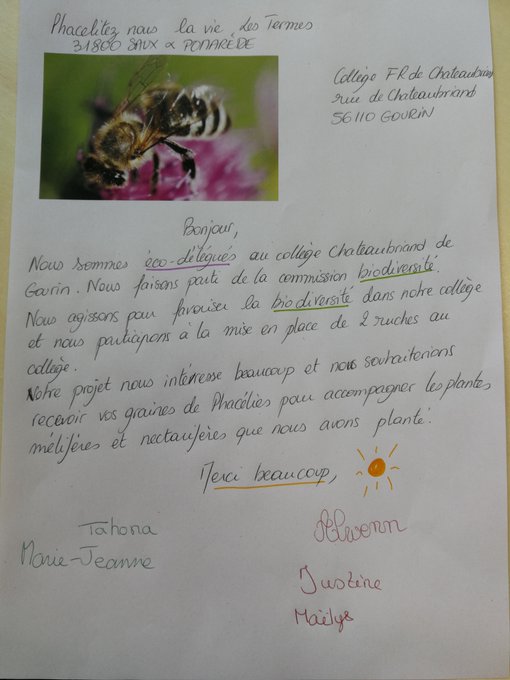 Phacelitez nous la vie des Termes
31800 SAUX & POMARÈDE
Collège FR de Chateaubriand
rue de Chateaubriand
56110 GOURIN
Bonjour,
Nous sommes éco-délégués au collège Chateaubriand de
Gourin. Nous faisons parti de la commission biodiversité.
Nous agissons pour favoriser la biodiversité dans notre collège
et nous participons à la mise en place de 2 ruches au
collège.
Votre projet nous intéresse beaucoup et nous souhaiterions
recevoir vos graines de Phacélies pour accompagner les plantes
mélifères et nectarifères que nous avons planté.
Merci beaucoup,
Tahona
Marie-Jeanne
Alwenn
Justine
Maëlys